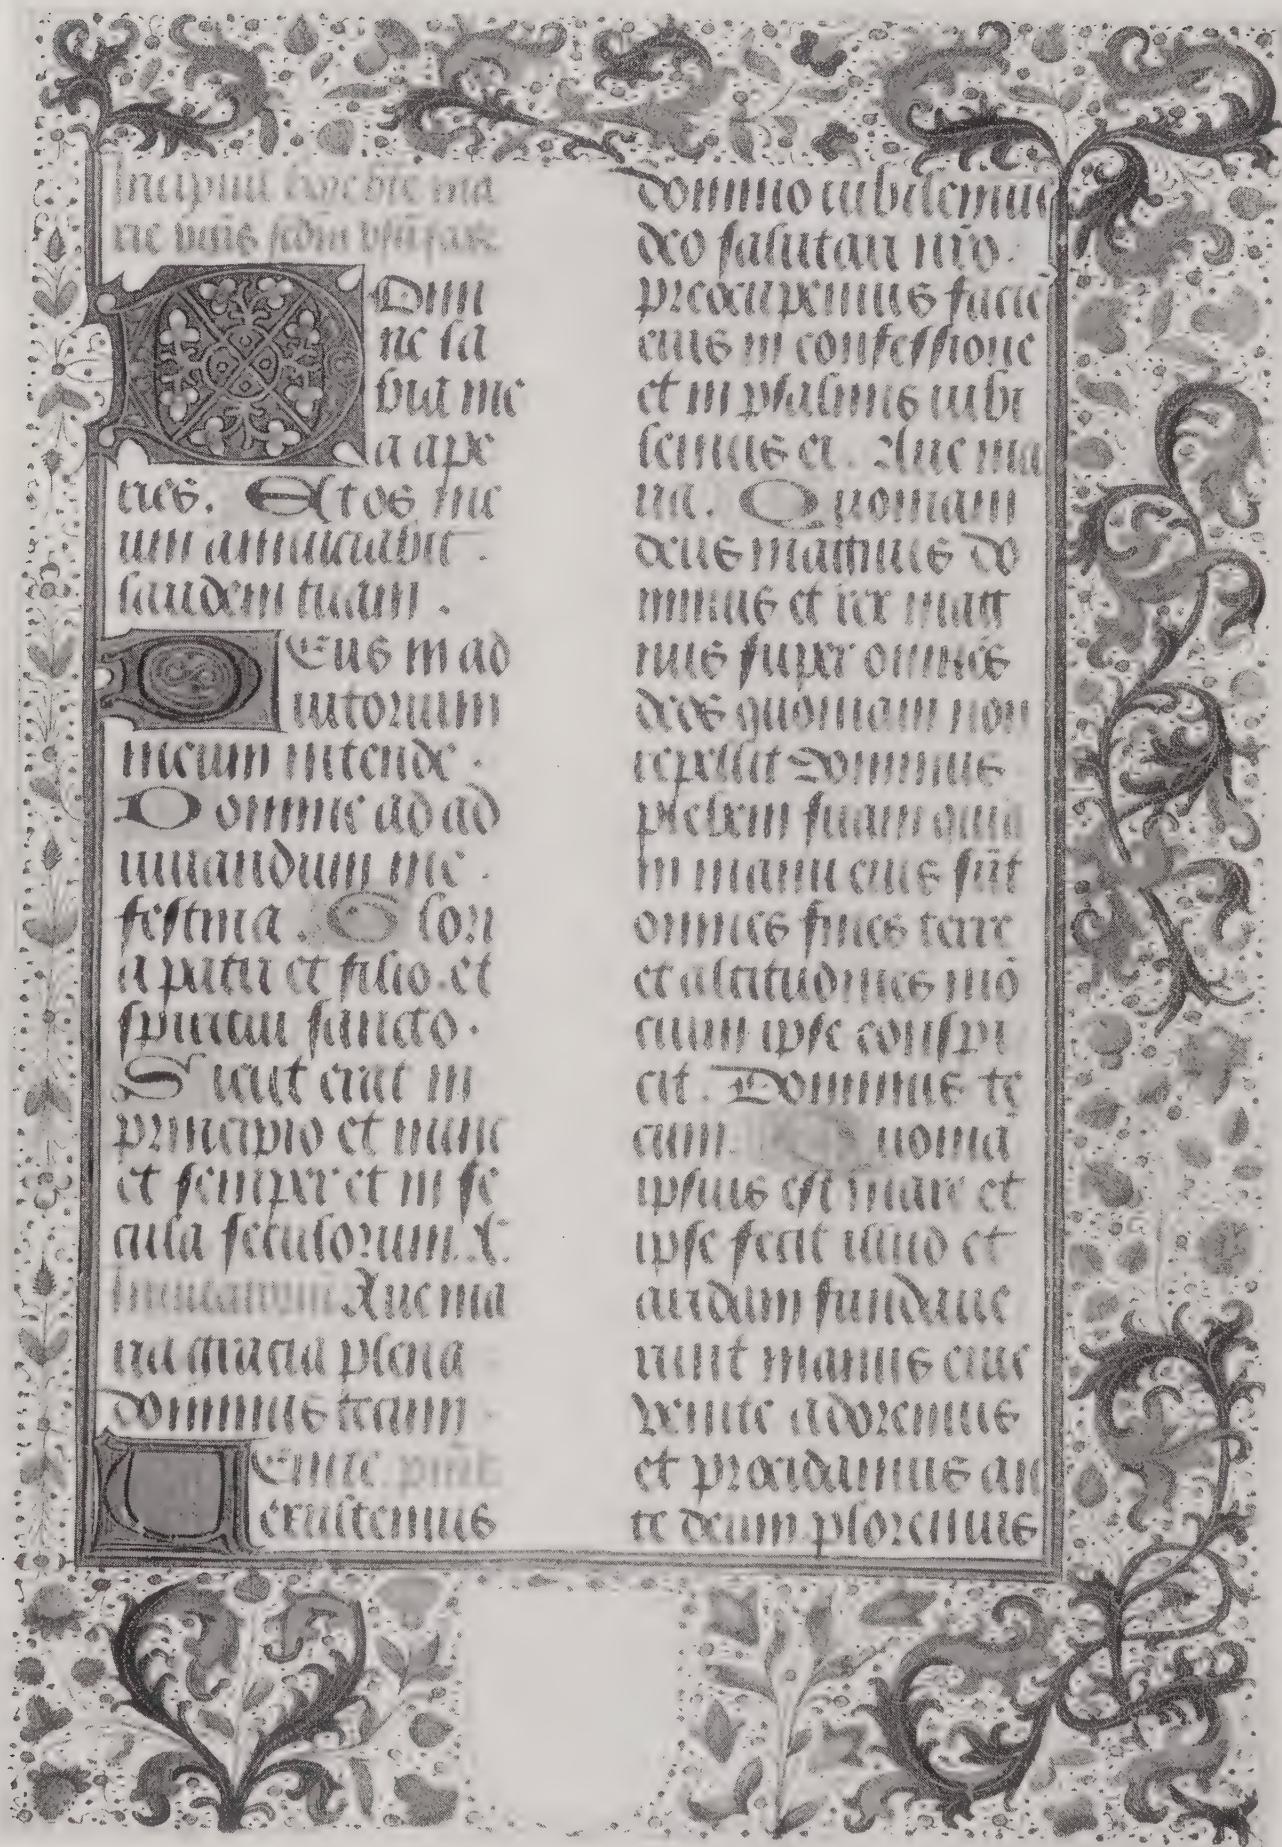 Incipiūt hore bte ma
rie v̄gīs scdm vsū sar
Omi
ne la
bia me
a ape
ries. Et os me
um annunciabit.
laudem tuam.
Deus in ad
iutorium
meum intende.
Domine ad ad
iuuandum me.
festina. Glori
a patri et filio. et
spiritui sancto.
Sicut erat in
principio et nunc
et semper et in se
cula seculorum.
Inuitatoriū Aue ma
ria gracia plena
dominus tecum.
Uenite
exultemus
domino iubilemus
deo salutari nr̄o.
preocupemus facie
eius in confessione
et in psalmis iubi
lemus ei. Aue ma
ria. Quoniam
deus magnus do
minus et rex mag
nus super omnes
deos quoniam non
repellit dominus
plebem suam quia
in manu eius sūt
omnes fines terre
et altitudines mō
cium ipse conspi
cit. Dominus te
cum. Quoniā
ipsius est mare et
ipse fecit illud et
aridam fundaue
runt manus eius
venite adoremus
et procidamus an
te deum ploremus